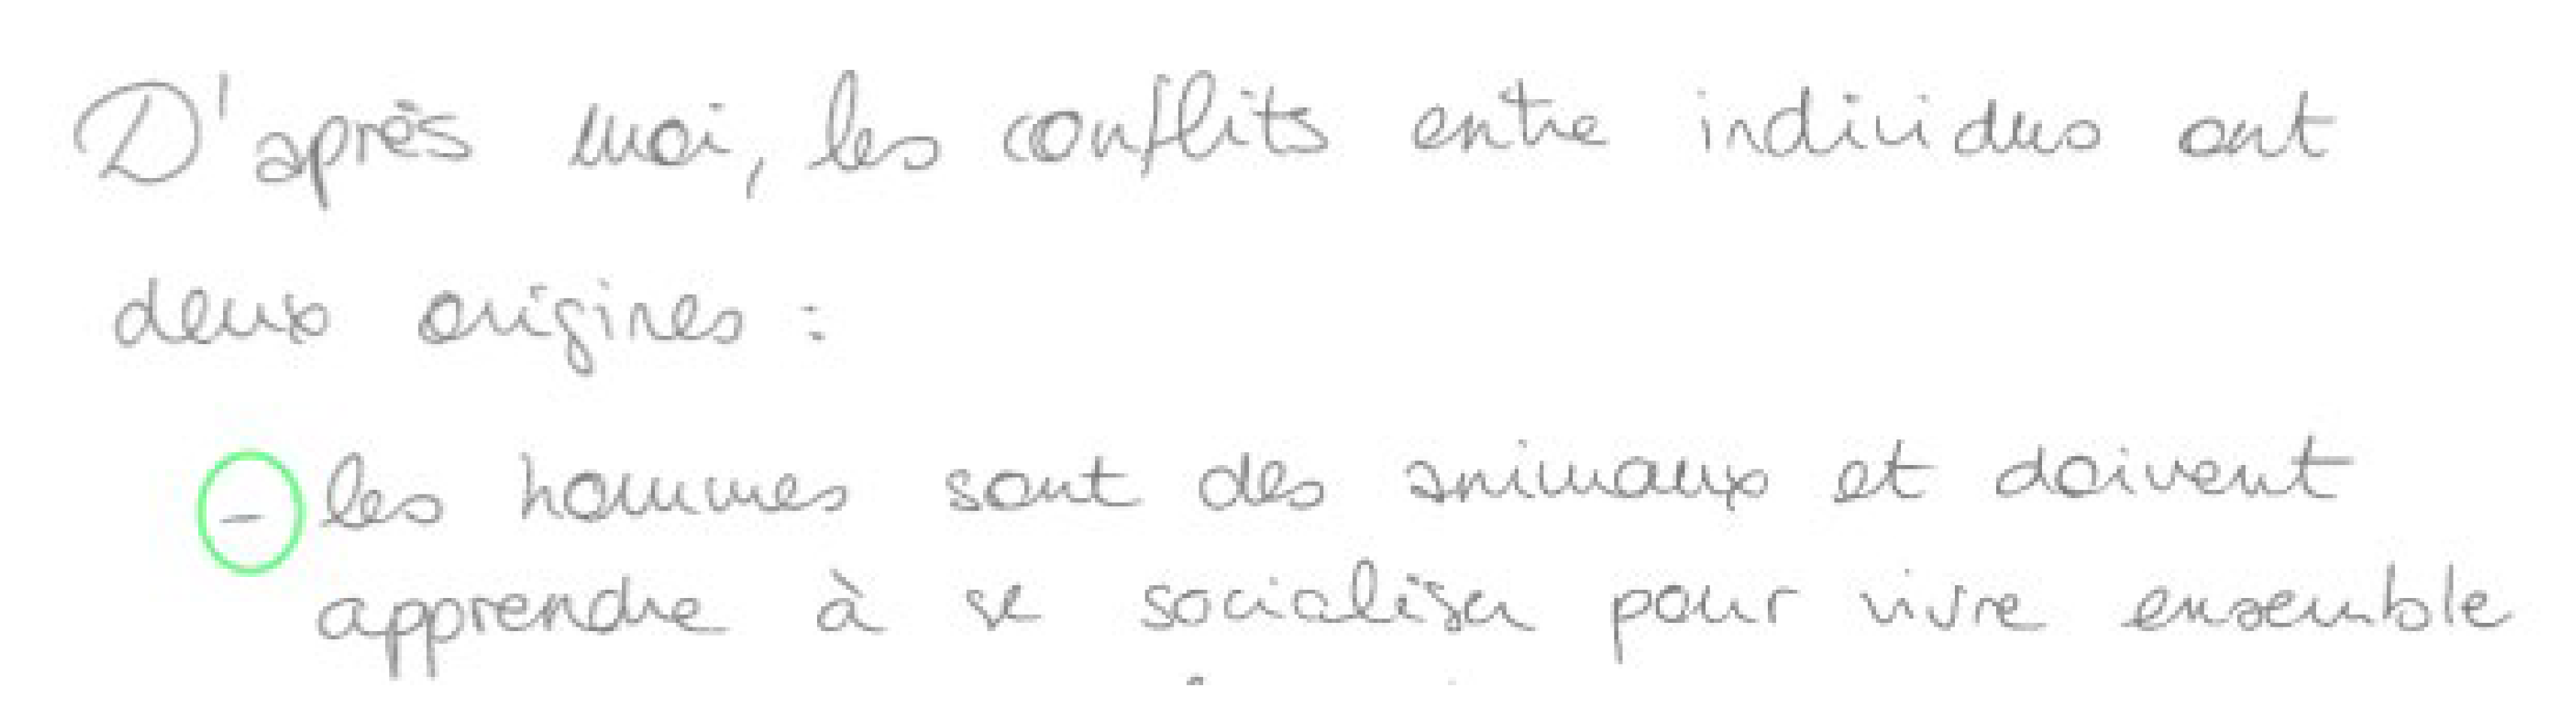 D'après moi, les conflits entre individus ont
deux origines :
- les hommes sont des animaux et doivent
apprendre à se socialiser pour vivre ensemble